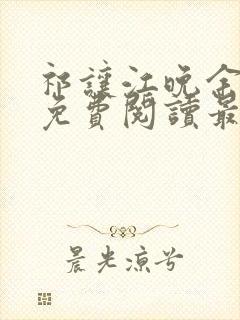 祁讓江晚余
免費閱讀最
晨光涼兮